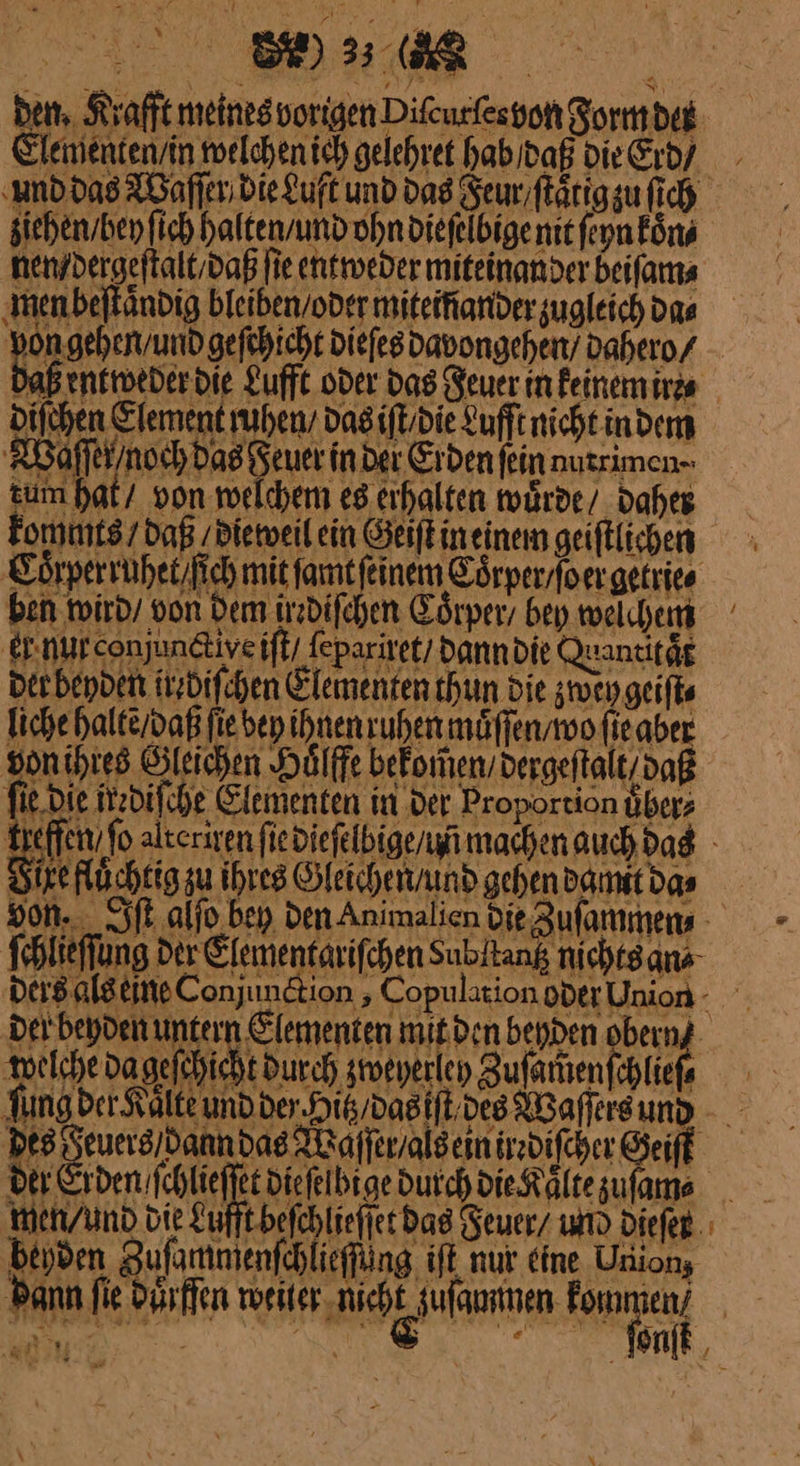 ) 33 (
den. Krafft meines vorigen Diſcurſes von Form der
Elementen/in welchen ich gelehret hab/daß die Erd/
und das Waſſer/die Luft und das Feur/ſtaͤtig zu ſich
ziehen/bey ſich halten/und ohn dieſelbige nit ſeyn koͤn⸗
nen/dergeſtalt/daß ſie entweder miteinander beiſam⸗
men beſtaͤndig bleiben/oder miteinander zugleich da⸗
von gehen/und geſchicht dieſes davongehen/ dahero/
daß entweder die Lufft oder das Feuer in keinem irꝛ⸗
diſchen Element ruhen/ das iſt/die Lufft nicht in dem
Waſſer/noch das Feuer in der Erden ſein nutrimen-
tum hat/ von welchem es erhalten wuͤrde/ daher
kommts/daß/dieweil ein Geiſt in einem geiſtlichen
Coͤrper ruhet/ſich mit ſamt ſeinem Coͤrper/ſo er getrie⸗
ben wird/ von dem irꝛdiſchen Coͤrper/ bey welchem
er nur conjunctive iſt/ ſepariret/ dann die Quantitaͤt
der beyden irꝛdiſchen Elementen thun die zwey geiſt⸗
liche haltē/daß ſie bey ihnen ruhen muͤſſen/wo ſie aber
von ihres Gleichen Huͤlffe bekom̃en/dergeſtalt/daß
ſie die irꝛdiſche Elementen in der Proportion uͤber⸗
treffen/ſo alteriren ſie dieſelbige/uñ machen auch das
Fixe fluͤchtig zu ihres Gleichen/und gehen damit da⸗
von. Iſt alſo bey den Animalien die Zuſammen⸗
ſchlieſſung der Elementariſchen Subſtantz nichts an⸗
ders als eine Conjunction, Copulation oder Union
der beyden untern Elementen mit den beyden obern/
welche da geſchicht durch zweyerley Zuſam̃enſchlieſ⸗
ſung der Kaͤlte und der Hitz/das iſt/des Waſſers und
des Feuers/dann das Waſſer/als ein irꝛdiſcher Geiſt
der Erden/ſchlieſſet dieſelbige durch die Kaͤlte zuſam⸗
men/und die Lufft beſchlieſſet das Feuer/ und dieſer
beyden Zuſammenſchlieſſung iſt nur eine Union,
dann ſie duͤrffen weiter nicht zuſammen kommen/
C ſonſt